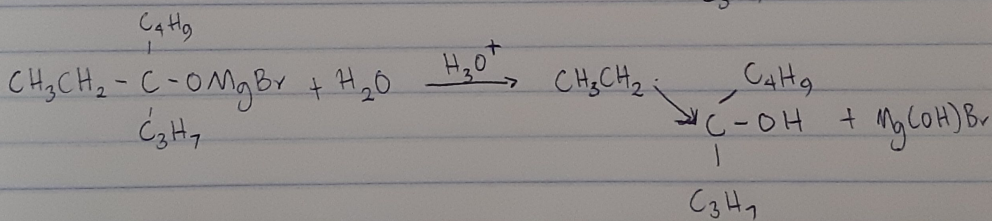 C4H9
CH3CH2 - C - OMgBr + H2O H3O+ → CH3CH2 C4H9
C3H7 C - OH + Mg(OH)Br
C3H7